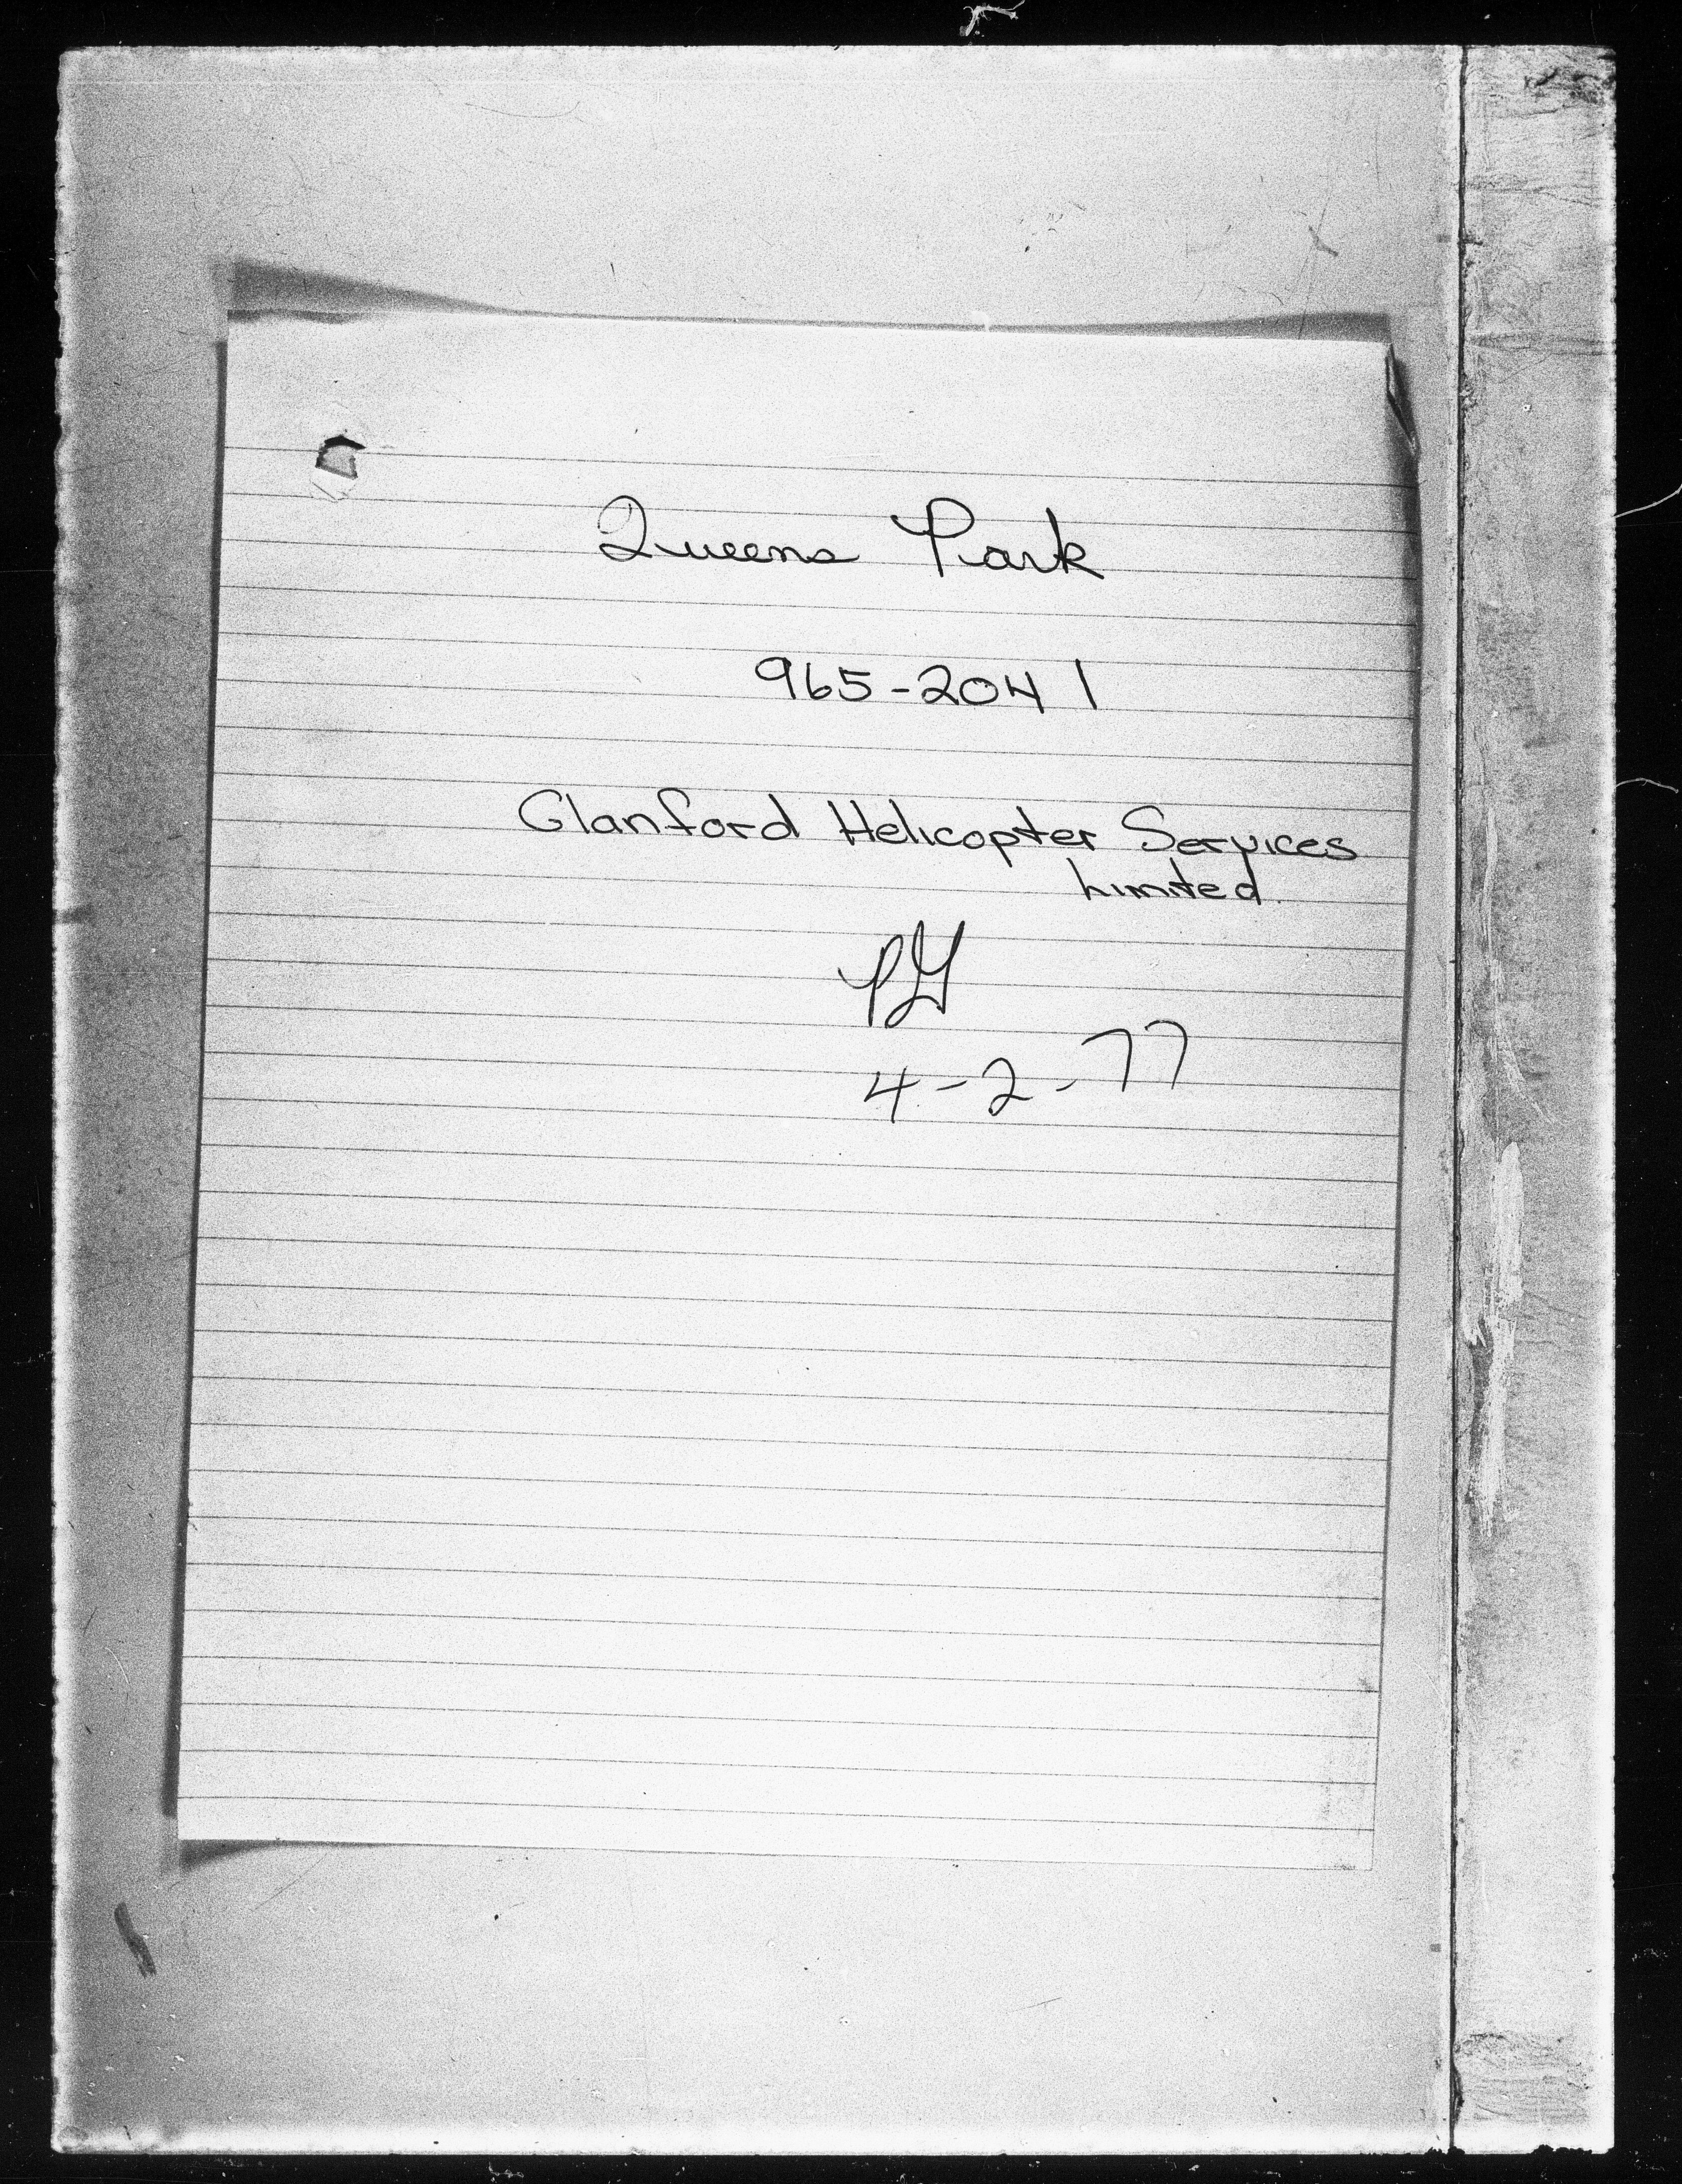 Queens Park
965-2041
Glanford Helicopter Services
Limited.
PG
4-2-77